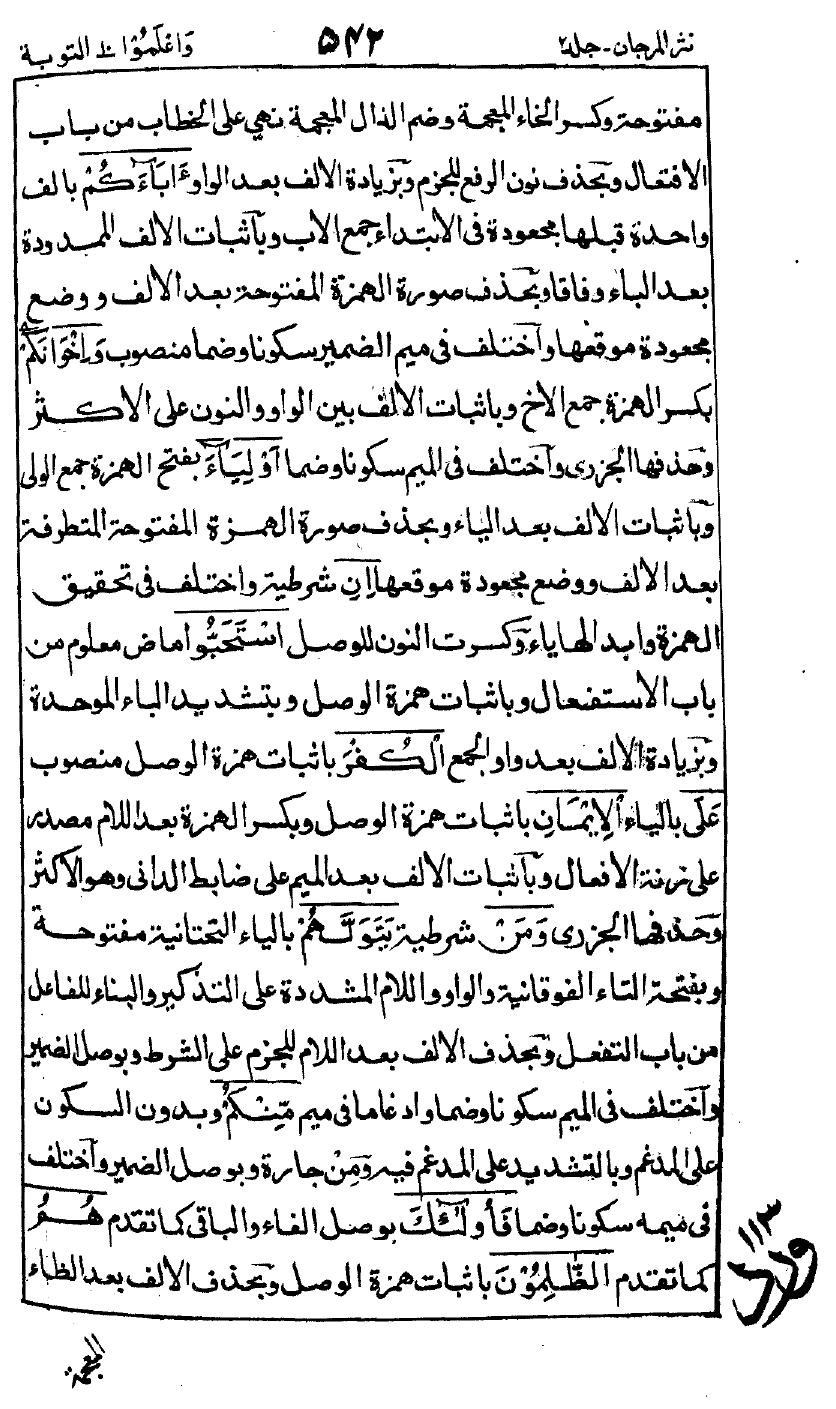 نثر المرجان - جلد٢ ۵۴۲ وَاعْلَمُوْا ١٠ التوبة
مفتوحة وكسر الخاء المعجمة وضم الذال المعجمة نهي على الخطاب من باب
الافتعال وبحذف نون الرفع للجزم وبزيادة الالف بعد الواو ءَابَآءَكُمْ بالف
واحدة قبلها مجعودة فى الابتداء جمع الاب وبآثبات الالف الممدودة
بعد الباء وفاقا وبحذف صورة الهمزة المفتوحة بعد الالف ووضع
مجعودة موقعها وآختلف فى ميم الضمير سكونا وضما منصوب وَاِخْوَانَكُمْ
بكسر الهمزة جمع الاخ وباثبات الالف بين الواو والنون على الاكثر
وحذفها الجزرى وآختلف فى الميم سكونا وضما اَوْلِيَآءَ بفتح الهمزة جمع الولى
وباثبات الالف بعد الياء وبحذف صورة الهمزة المفتوحة المتطرفة
بعد الالف ووضع مجعودة موقعها اِنِ شرطية واختلف فى تحقيق
الهمزة وابدالها ياء وكسرت النون للوصل اسْتَحَبُّوا ماض معلوم من
باب الاستفعال وباثبات همزة الوصل وبتشديد الباء الموحدة
وبزيادة الالف بعد واو الجمع الْكُفْرَ باثبات همزة الوصل منصوب
عَلَى بالياء الْاِيْمَانِ باثبات همزة الوصل وبكسر الهمزة بعد اللام مصدر
على زنة الافعال وبآثبات الالف بعد الميم على ضابط الدانى وهو الاكثر
وحذفها الجزرى وَمَنْ شرطية يَتَوَلَّهُمْ بالياء التحتانية مفتوحة
وبفتحة التاء الفوقانية والواو واللام المشددة على التذكير والبناء للفاعل
من باب التفعل وبحذف الالف بعد اللام للجزم على الشرط وبوصل الضمير
وآختلف فى الميم سكونا وضما وادغاما فى ميم مِّنْكُمْ وبدون السكون
على المدغم وبالتشديد على المدغم فيه ومِنْ جارة وبوصل الضمير وآختلف
فى ميمه سكونا وضما فَاُولٰٓئِكَ بوصل الفاء والباقى كما تقدم هُمُ
كما تقدم الظّٰلِمُوْنَ باثبات همزة الوصل وبحذف الالف بعد الظاء
المعجمة